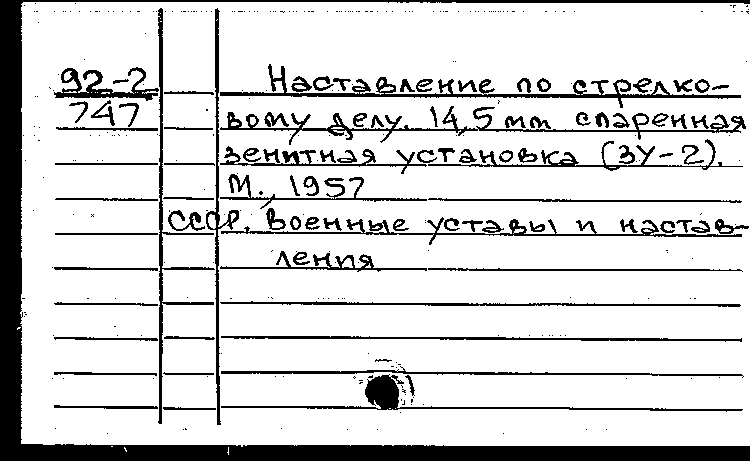 92-2
747
Наставление по стрелко-
вому делу. 14,5 мм спаренная
зенитная установка (ЗУ-2).
М., 1957
СССР. Военные уставы и настав-
ления